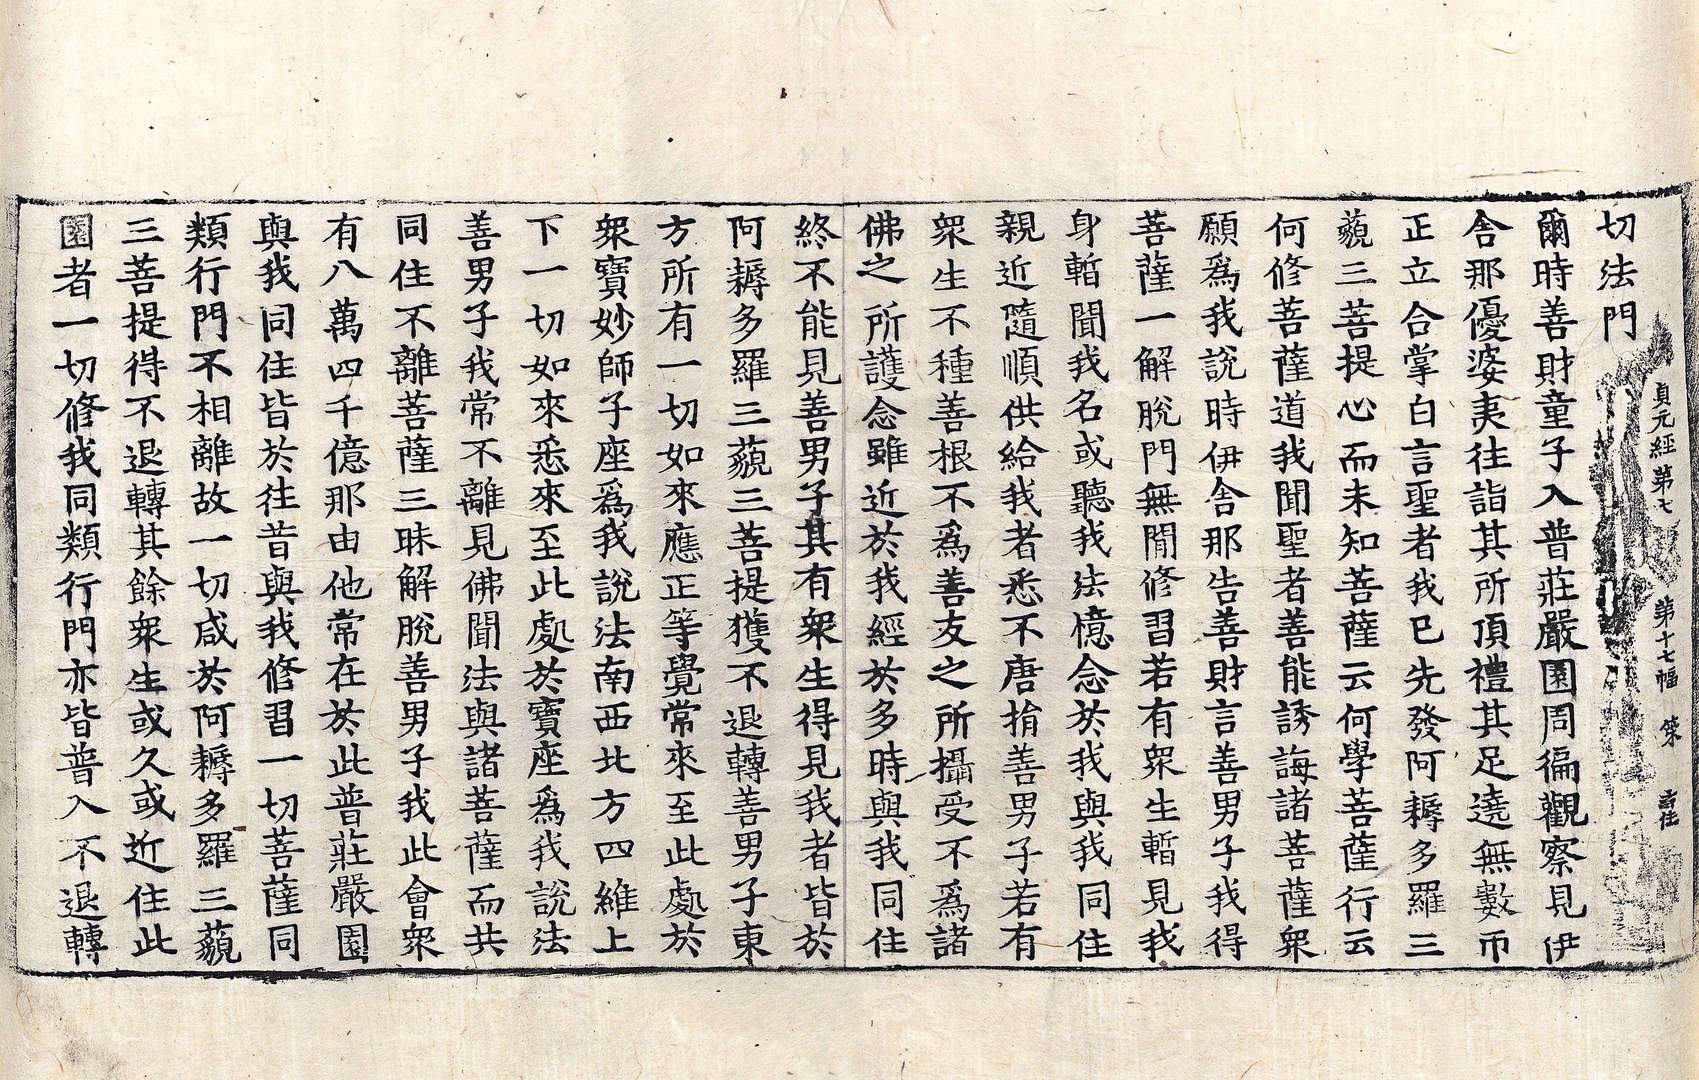 貞元經第七 第十七幅
切法門
爾時善財童子入普莊嚴園周徧觀察見伊
舍那優婆夷往詣其所頂禮其足遶無數帀
正立合掌白言聖者我已先發阿耨多羅三
藐三菩提心而未知菩薩云何學菩薩行云
何修菩薩道我聞聖者善能誘誨諸菩薩衆
願爲我說時伊舍那告善財言善男子我得
菩薩一解脫門無閒修習若有衆生暫見我
身暫聞我名或聽我法憶念於我與我同住
親近隨順供給我者悉不唐捐善男子若有
衆生不種善根不爲善友之所攝受不爲諸
佛之所護念雖近於我經於多時與我同住
終不能見善男子其有衆生得見我者皆於
阿耨多羅三藐三菩提獲不退轉善男子東
方所有一切如來應正等覺常來至此處於
衆寶妙師子座爲我說法南西北方四維上
下一切如來悉來至此處於寶座爲我說法
善男子我常不離見佛聞法與諸菩薩而共
同住不離菩薩三昧解脫善男子我此會衆
有八萬四千億那由他常在於此普莊嚴園
與我同住皆於往昔與我修習一切菩薩同
類行門不相離故一切咸於阿耨多羅三藐
三菩提得不退轉其餘衆生或久或近住此
園者一切修我同類行門亦皆普入不退轉